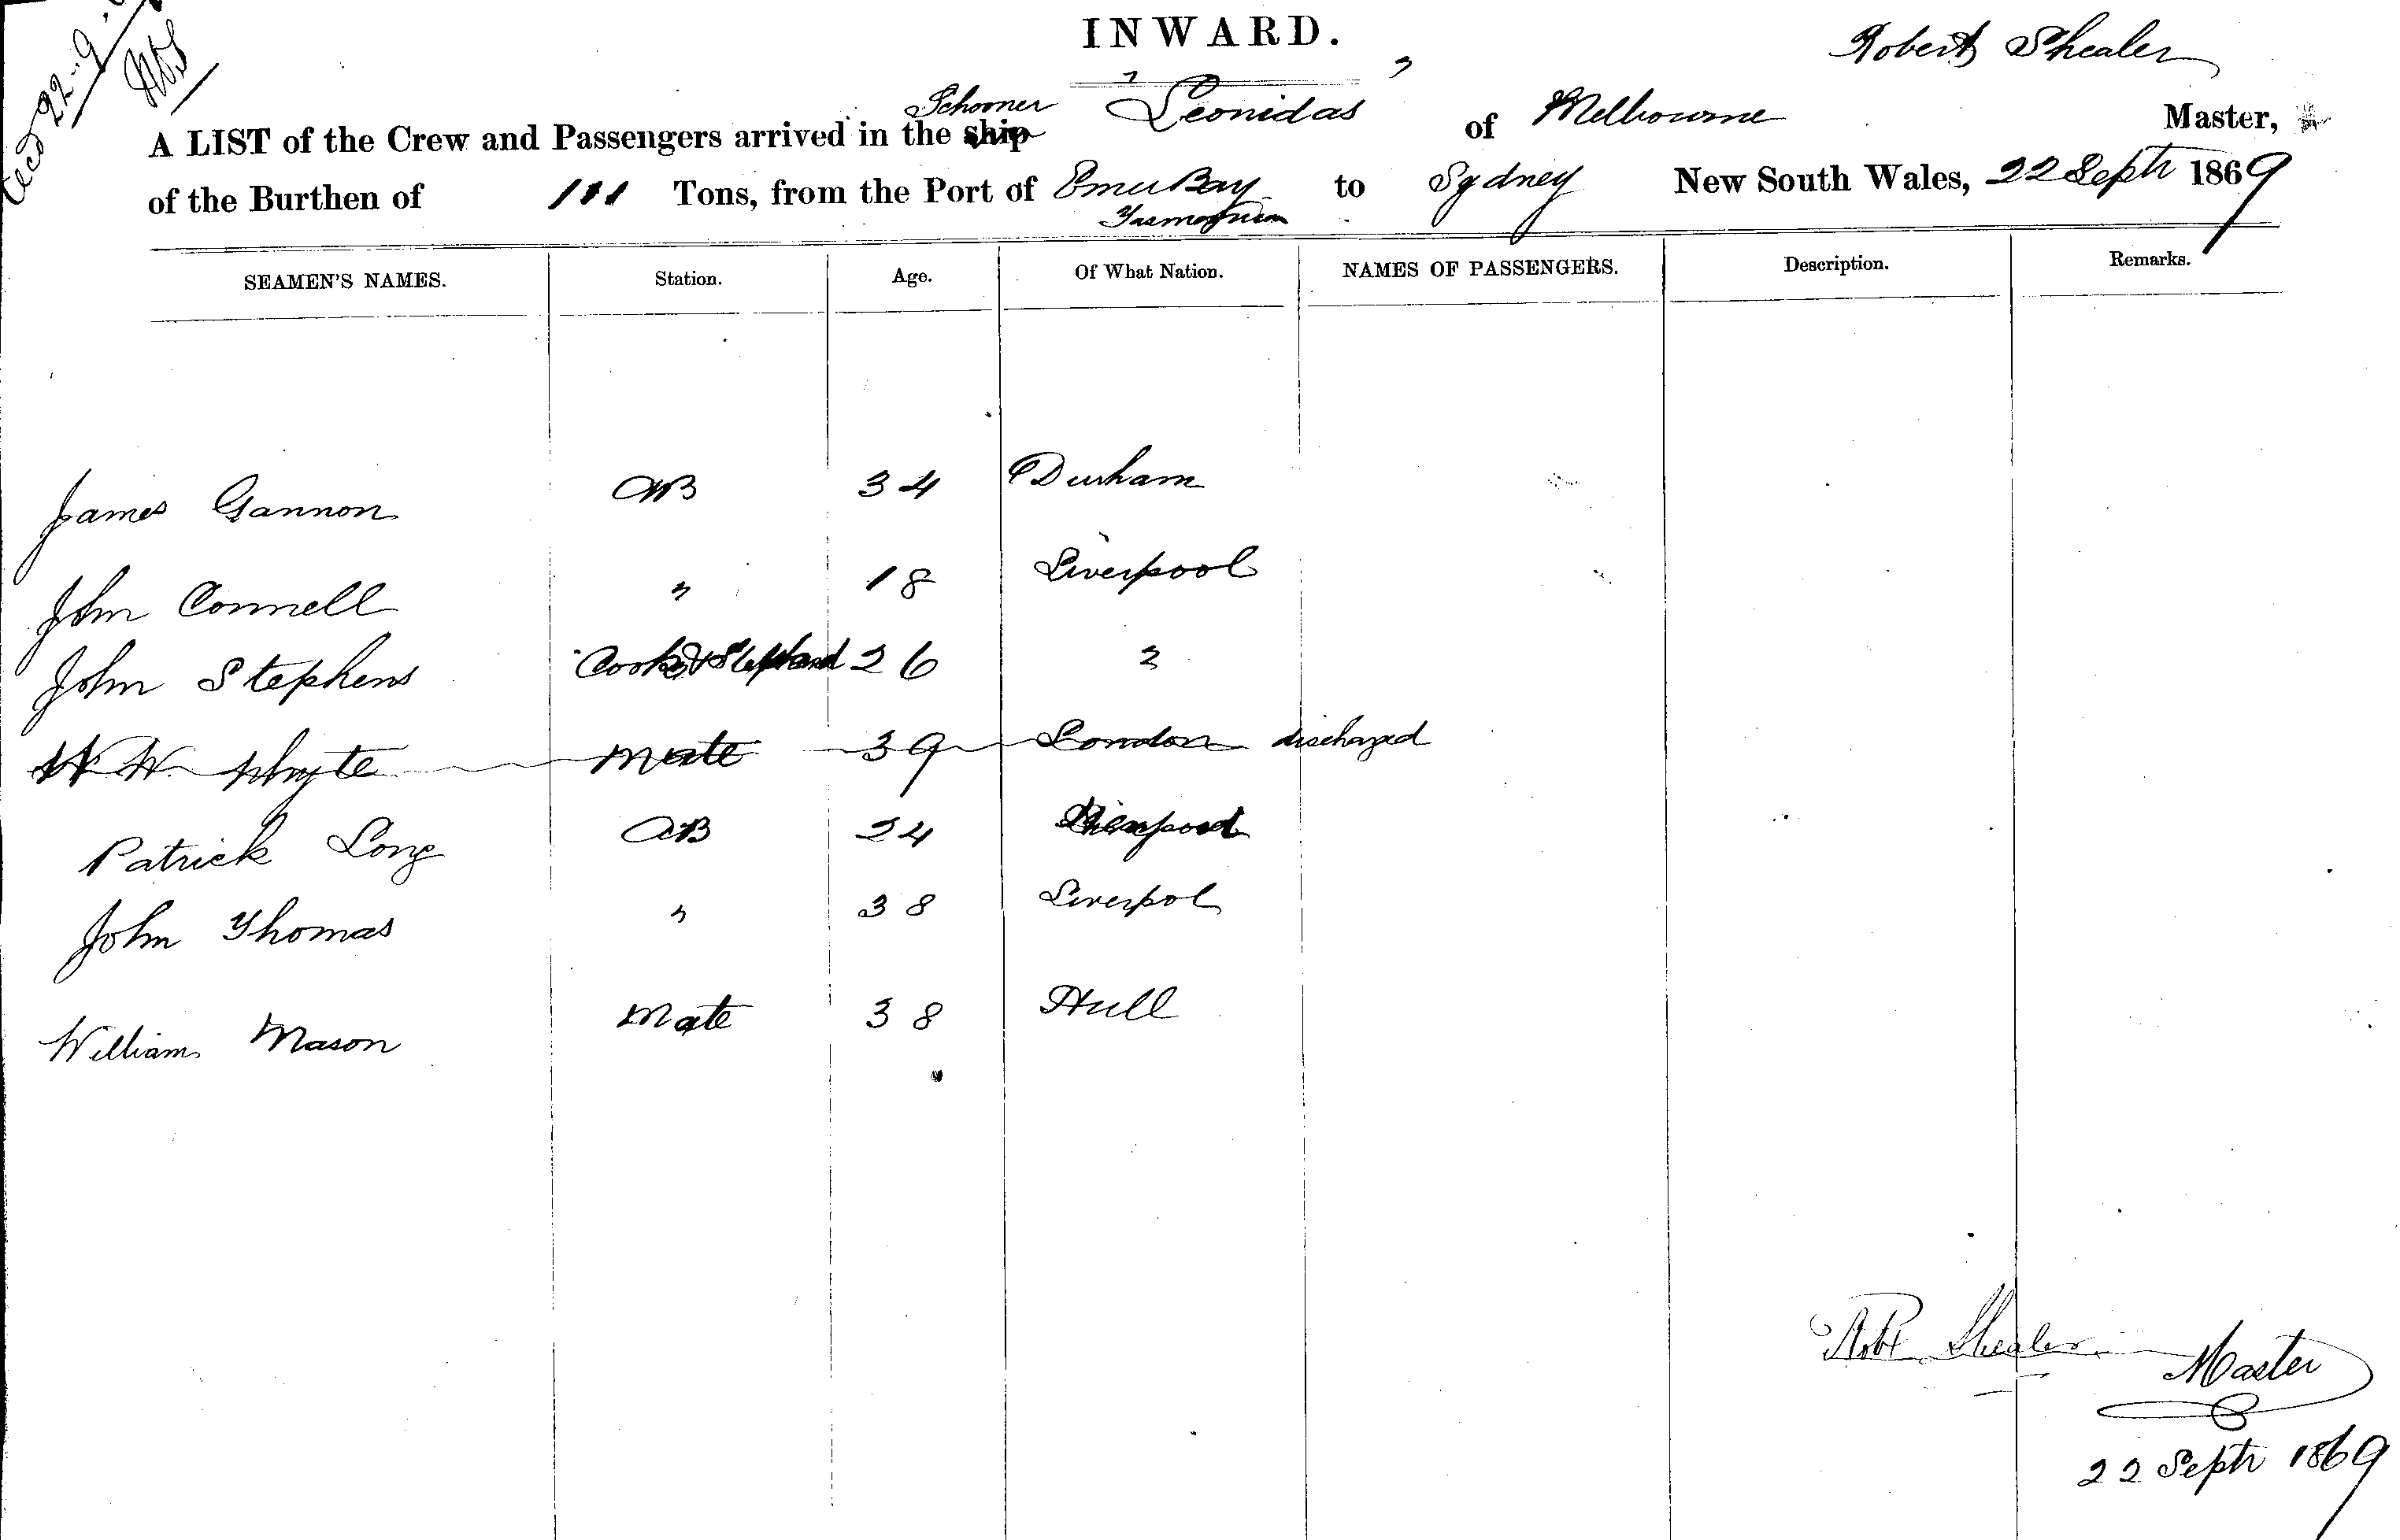 22-9-
INWARD.
Robert Shealer
Schooner " Leonidas "
A LIST of the Crew and Passengers arrived in the ship of Melbourne Master,
of the Burthen of 111 Tons, from the Port of Emu Bay to Sydney New South Wales, 22 Septr 1869
SEAMEN'S NAMES. Station. Age. Of What Nation. NAMES OF PASSENGERS. Description. Remarks.
James Gannon AB 34 Durham
John Connell " 18 Liverpool
John Stephens Cook & 26 "
W W Whyte Mate 39 London discharged
Patrick Long AB 24
John Thomas " 38 Liverpol
William Mason Mate 38 Hull
Robt Shealer Master
22 Septr 1869